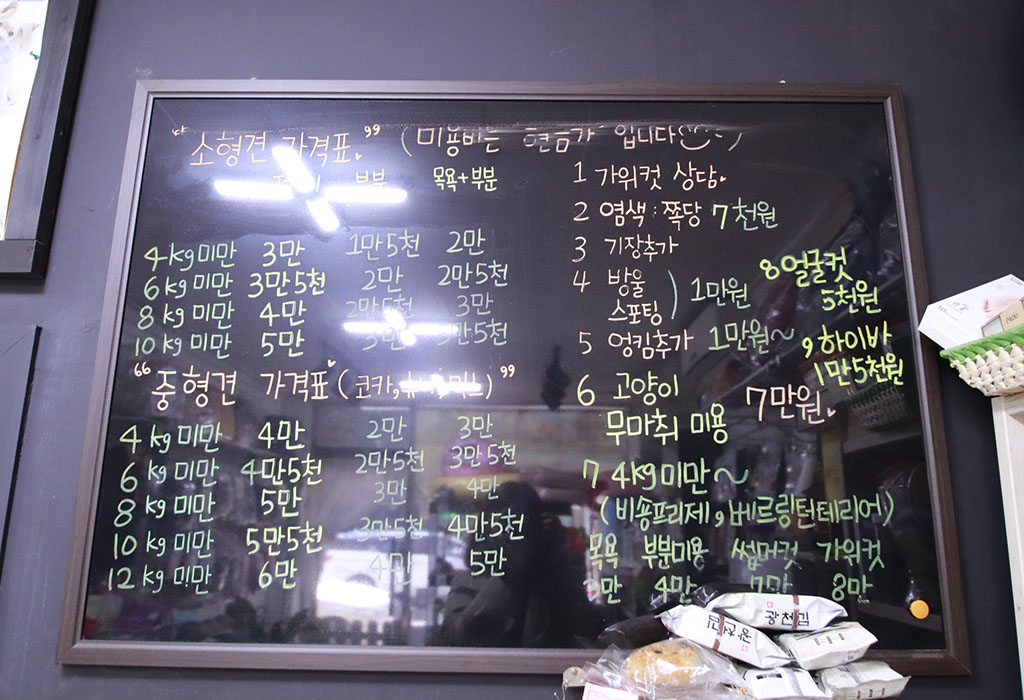 "소형견 가격표." (미용비는 현금가 입니다
부분 목욕+부분
4kg미만 3만 1만5천 2만
6kg미만 3만5천 2만 2만5천
8kg미만 4만 2만5천 3만
10kg미만 5만
"중형견 가격표 (코카,
4kg미만 4만 2만 3만
6kg미만 4만5천 2만5천 3만5천
8kg미만 5만 3만 4만
10kg미만 5만5천 3만5천 4만5천
12kg미만 6만 4만 5만
1 가위컷 상담.
2 염색:쪽당 7천원
3 기장추가
4 방울
스포팅 ) 1만원
5 엉킴추가 1만원~
6 고양이
무마취 미용 7만원.
7 4kg미만~
(비숑프리제, 베르링턴테리어)
목욕 부분미용 썸머컷 가위컷
3만 4만 7만 8만
8 얼굴컷
5천원
9 하이바
1만5천원
광천김